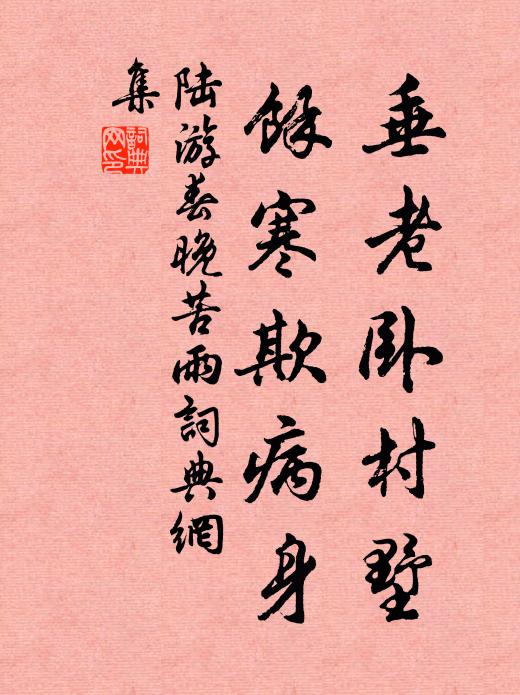 垂老卧村墅
餘寒欺病身
陆游春晚苦雨詞典網
集
詞典
网印